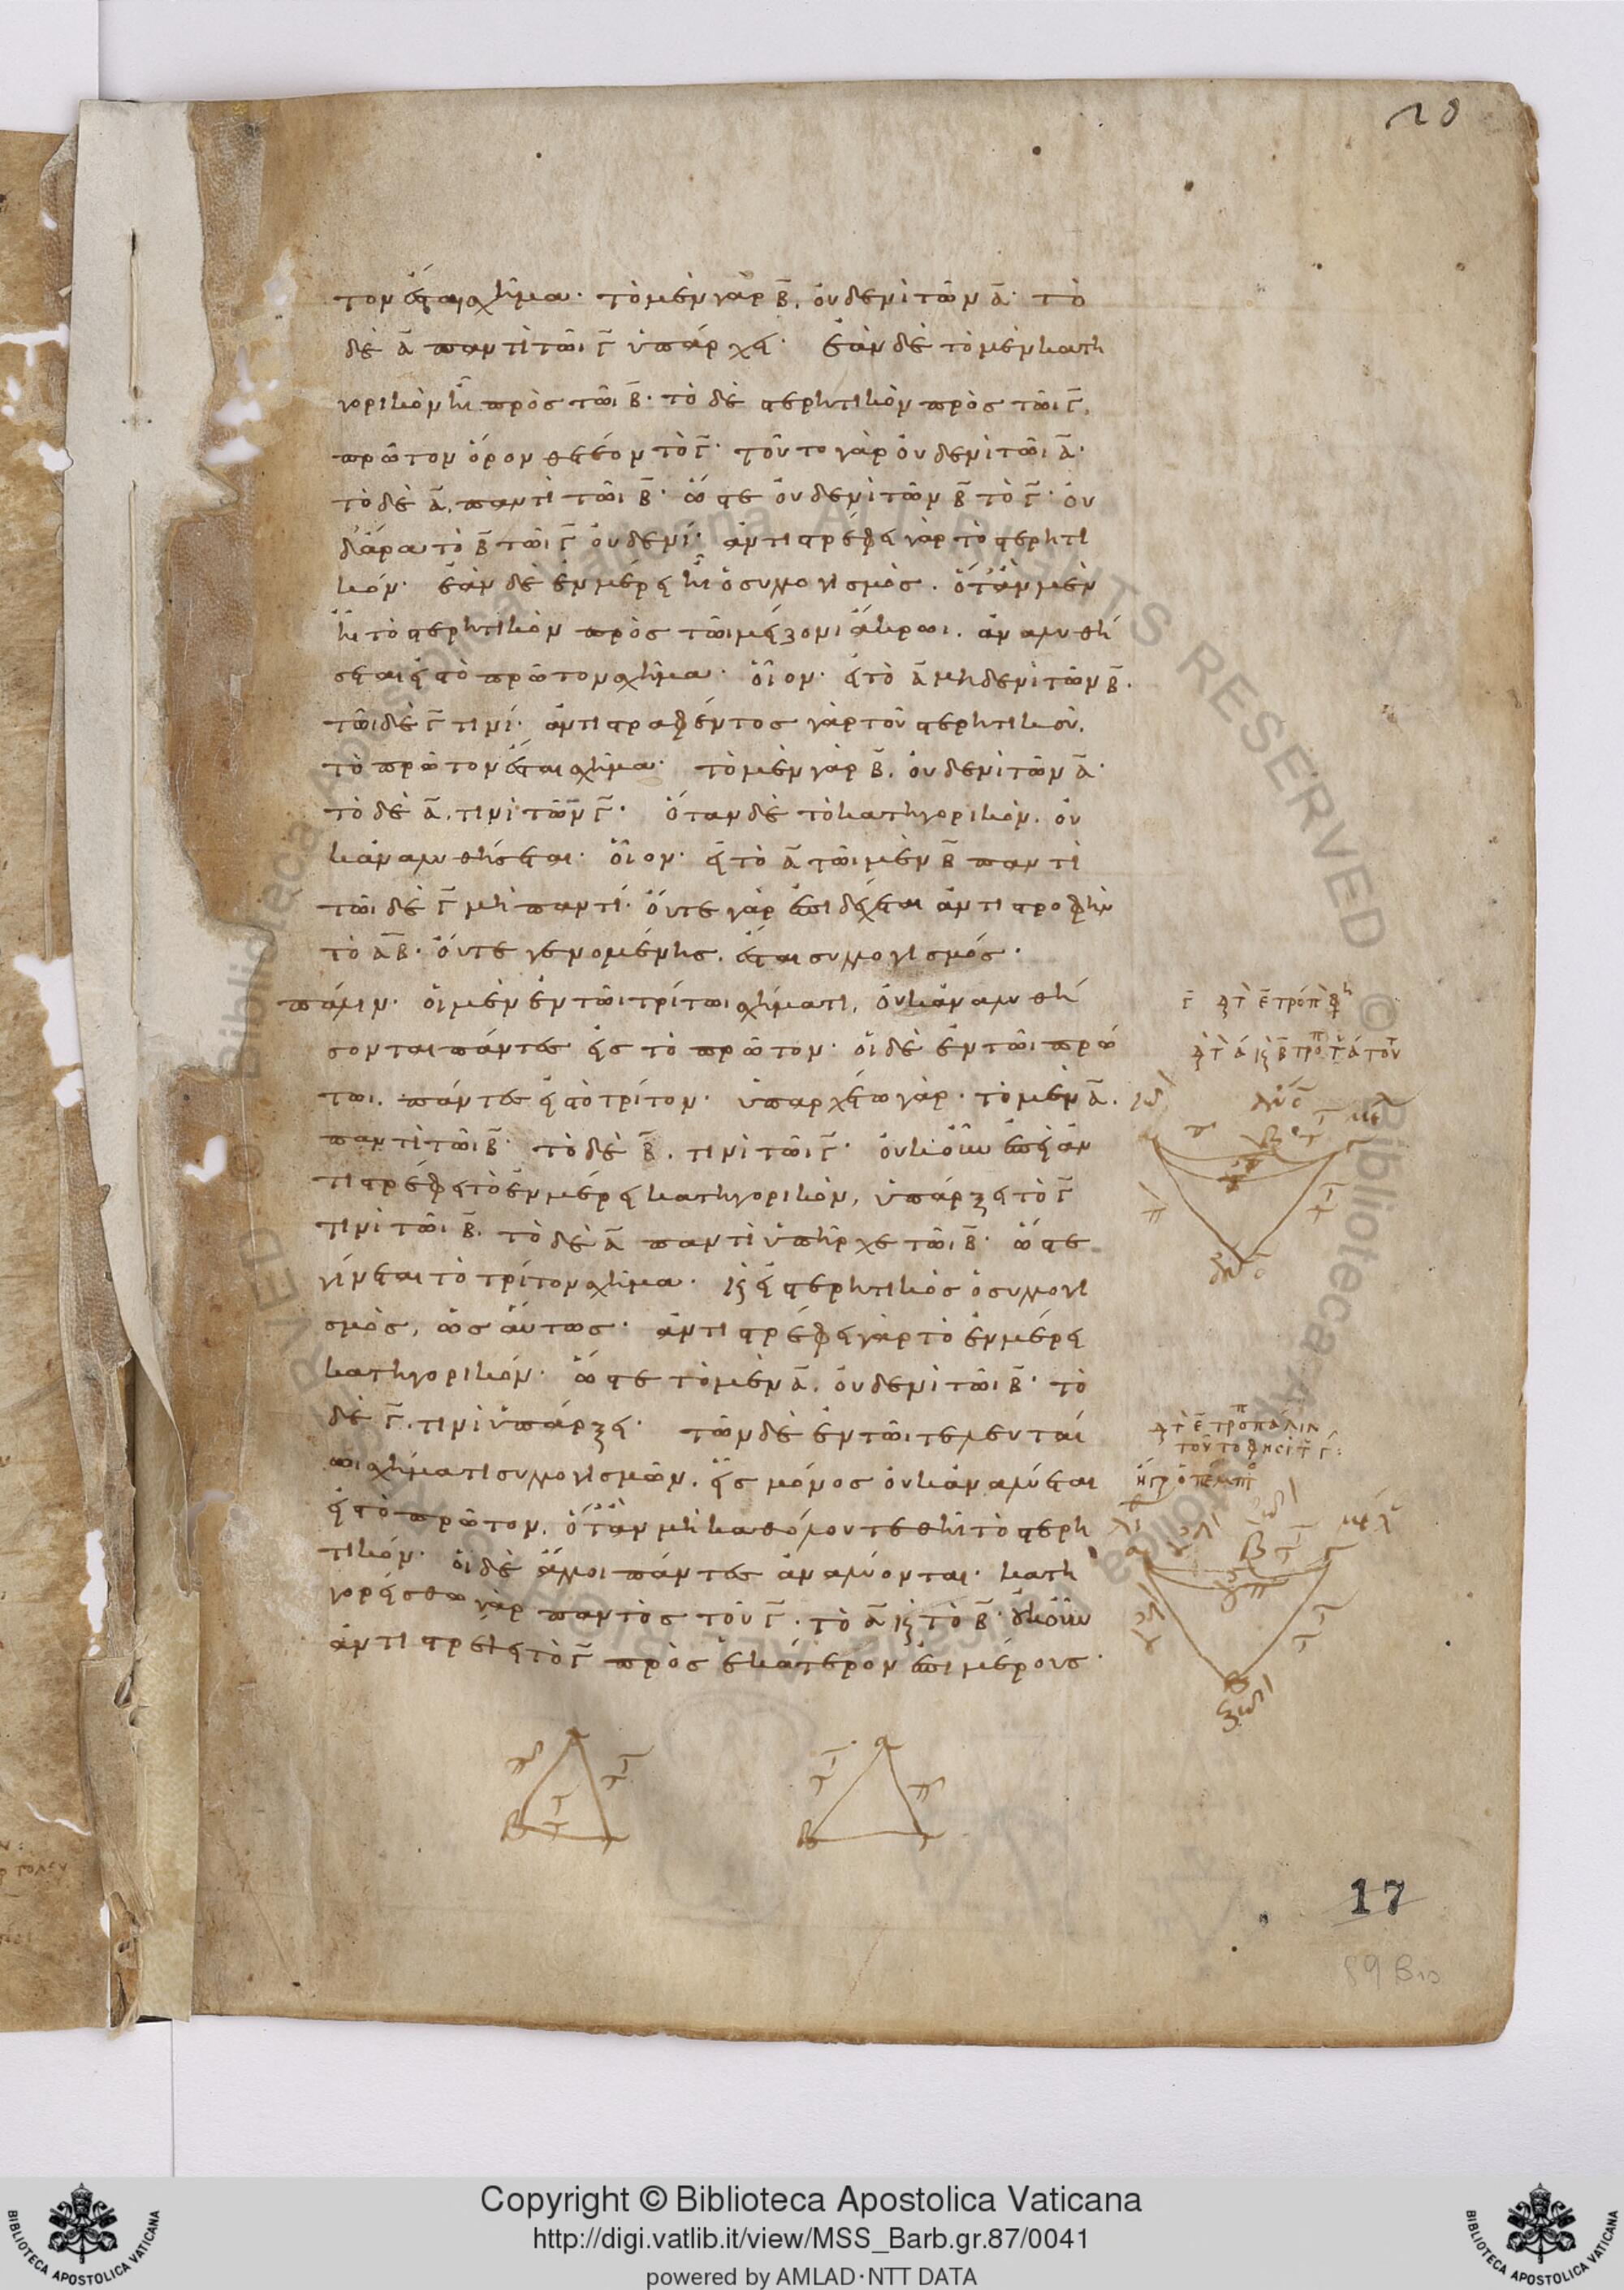 20
τον ἔσται σχῆμα· τὸ μὲν γὰρ Β̄, οὐδενὶ τῶν Ᾱ· τὸ
δὲ Ᾱ παντὶ τῶι Γ̄ ὑπάρχει· ἐὰν δὲ τὸ μὲν κατη
γορικὸν ἦι πρὸς τῶι Β̄· τὸ δὲ στερητικὸν πρὸς τῶι Γ̄,
πρῶτον ὅρον θετέον τὸ Γ̄· τοῦτο γὰρ οὐδενὶ τῶι Ᾱ·
τὸ δὲ Ᾱ, παντὶ τῶι Β̄· ὥστε οὐδενὶ τῶν Β̄ τὸ Γ̄· οὐ
δ' ἄρα τὸ Β̄ τῶι Γ̄ οὐδενί· ἀντιστρέφει γὰρ τὸ στερητι
κόν· ἐὰν δὲ ἐν μέρει ἦι ὁ συλλογισμὸς. ὅτ' ἂν μὲν
ἦι τὸ στερητικὸν πρὸς τῶι μείζονι ἄκρωι. ἀναλυθή
σεται εἰς τὸ πρῶτον σχῆμα· οἷον· εἰ τὸ Ᾱ μηδενὶ τῶν Β̄.
τῶι δὲ Γ̄ τινί· ἀντιστραφέντος γὰρ τοῦ στερητικοῦ.
τὸ πρῶτον ἔσται σχῆμα· τὸ μὲν γὰρ Β̄. οὐδενὶ τῶν Ᾱ·
τὸ δὲ Ᾱ. τινὶ τῶν Γ̄· ὅταν δὲ τὸ κατηγορικόν. οὐ
κ ἀναλυθήσεται· οἷον· εἰ τὸ Ᾱ τῶι μὲν Β̄ παντὶ
τῶι δὲ Γ̄ μὴ παντί· οὔτε γὰρ ἐπιδέχεται ἀντιστροφὴν
τὸ ᾹΒ̄· οὔτε γενομένης. ἔσται συλλογισμός·
πάλιν· οἱ μὲν ἐν τῶι τρίτωι σχήματι, οὐκ ἀναλυθή
σονται πάντες εἰς τὸ πρῶτον· οἱ δὲ ἐν τῶι πρώ
τωι. πάντες εἰς τὸ τρίτον· ὑπαρχέτω γὰρ. τὸ μὲν Ᾱ.
παντὶ τῶι Β̄· τὸ δὲ Β̄. τινὶ τῶι Γ̄· οὐκοῦν ἐπεὶ ἀν
τιστρέφει τὸ ἐν μέρει κατηγορικόν, ὑπάρξει τὸ Γ̄
τινὶ τῶι Β̄. τὸ δὲ Ᾱ παντὶ ὑπῆρχε τῶι Β̄· ὥστε
γίνεται τὸ τρίτον σχῆμα· καὶ εἰ στερητικὸς ὁ συλλογι
σμὸς, ὡσαύτως· ἀντιστρέφει γὰρ τὸ ἐν μέρει
κατηγορικόν· ὥστε τὸ μὲν Ᾱ. οὐδενὶ τῶι Β̄· τὸ
δὲ Γ̄. τινὶ ὑπάρξει· τῶν δὲ ἐν τῶι τελευταί
ωι σχήματι συλλογισμῶν. εἷς μόνος οὐκ ἀναλύεται
εἰς τὸ πρῶτον. ὅτ' ἂν μὴ καθόλου τεθῆι τὸ στερη
τικόν· οἱ δὲ ἄλλοι πάντες ἀναλύονται· κατη
γορείσθω γὰρ παντὸς τοῦ Γ̄. τὸ Ᾱ καὶ τὸ Β̄· οὐκοῦν
ἀντιστρέψει τὸ Γ̄ πρὸς ἑκάτερον ἐπὶ μέρους·
17
89 B10
Copyright © Biblioteca Apostolica Vaticana
http://digi.vatlib.it/view/MSS_Barb.gr.87/0041
powered by AMLAD·NTT DATA
BIBLIOTECA APOSTOLICA VATICANA
BIBLIOTECA APOSTOLICA VATICANA